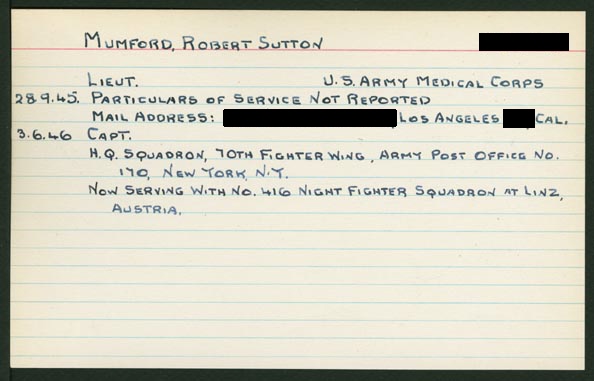 MUMFORD, ROBERT SUTTON
LIEUT. U.S. ARMY MEDICAL CORPS
28.9.45. PARTICULARS OF SERVICE NOT REPORTED
MAIL ADDRESS: LOS ANGELES CAL.
3.6.46 CAPT.
H.Q. SQUADRON, 70TH FIGHTER WING, ARMY POST OFFICE NO.
170, NEW YORK, N.Y.
NOW SERVING WITH NO. 416 NIGHT FIGHTER SQUADRON AT LINZ,
AUSTRIA.